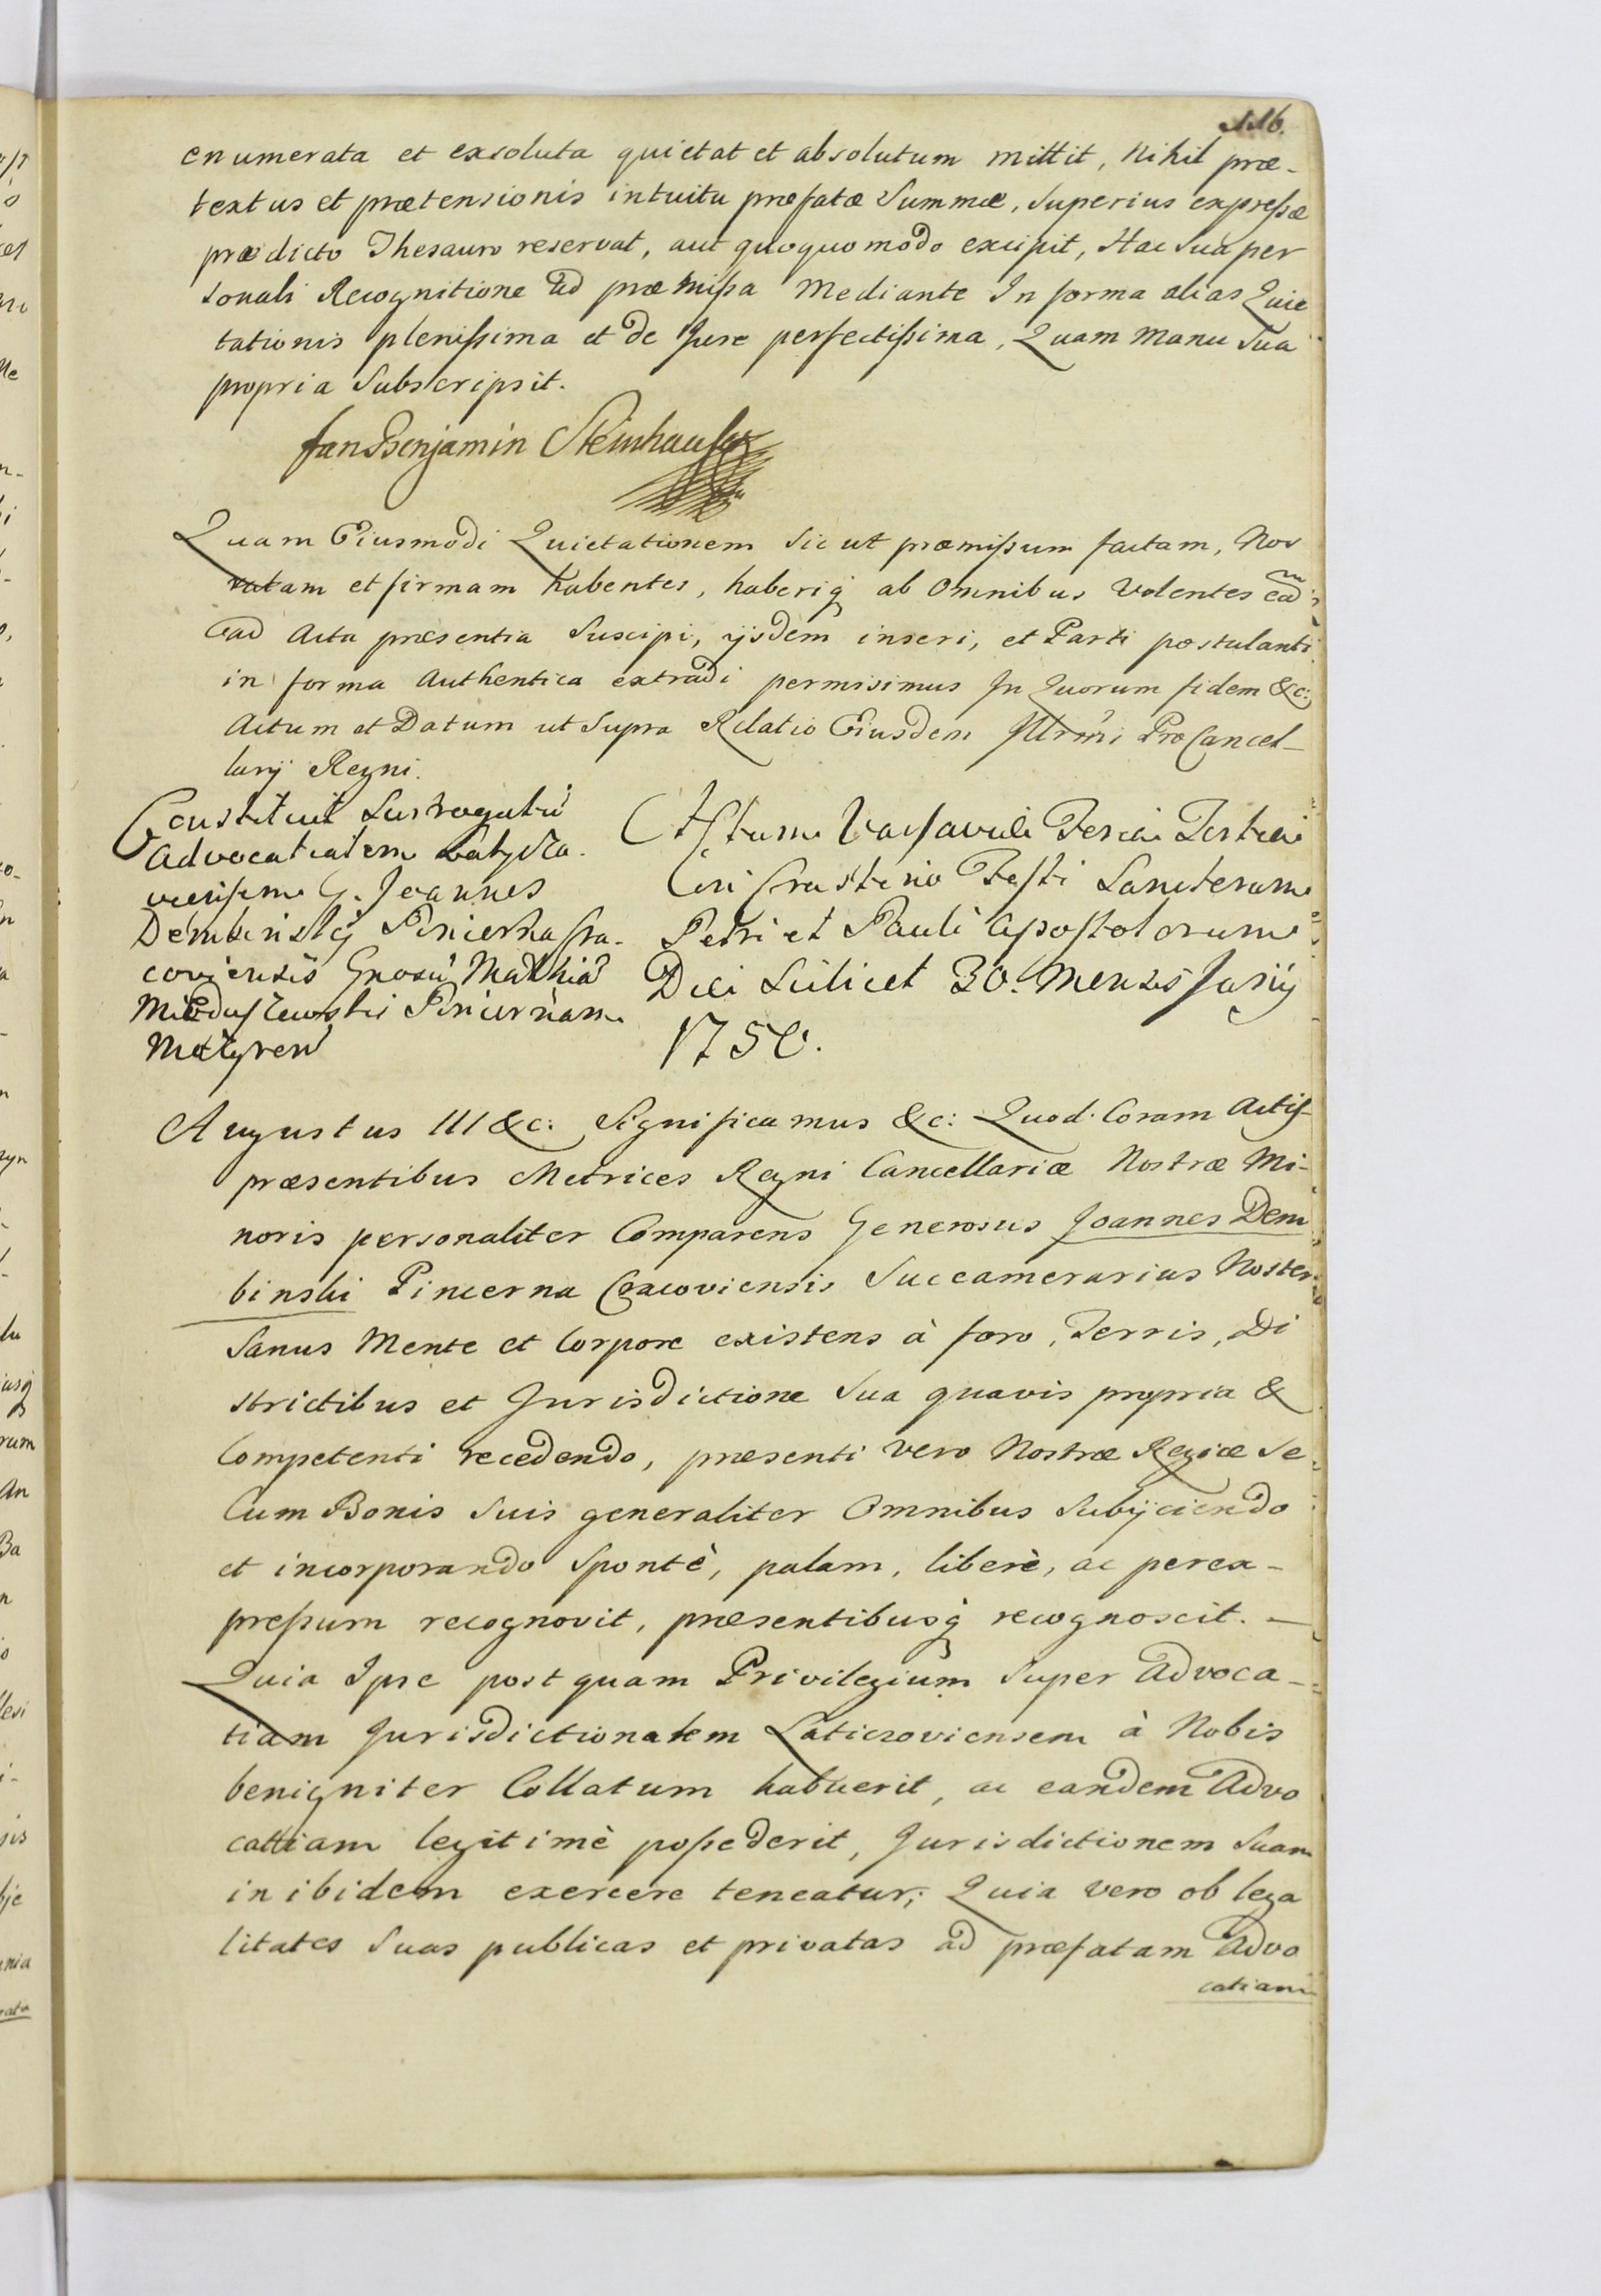 116.
enumerata et exsoluta quietat et absolutum mittit, Nihil præ-
textus et prætensionis intuitu præfatæ Summæ, Superius expressæ
prædicto Thesauro reservat, aut quoquomodo excipit, Hac Sua per
sonali Recognitione ad præmissa Mediante In forma alias Quie
tationis plenissima et de Jure perfectissima, Quam Manu Sua
propria Subscripsit.
Jan Benjamin Steinhauser
Quam Eiusmodi Quietationem Sic ut præmissum factam, Nos
ratam et firmam habentes, haberiq ab Omnibus Volentes
ad Acta præsentia Suscipi, ijsdem inseri, et Parti postulanti
in forma Authentica extradi permisimus In Quorum fidem &c:
Actum et Datum ut Supra Relatio Eiusdem Illrmi ProCancel-
larij Regni.
Constituit Surrogatũ
Advocatialem Latyczo.
viensem G. Joannes
Dembinskij Pincerna Cra-
coviensis Gnosũ Mathiã
Pincernam
Actum Varsaviæ Feria Tertia
Cori Crastino Festi Sanctorum
Petri et Pauli Apostolorum
Die Scilicet 30. Mensis Junij
1750.
Augustus III &c: Significamus &c: Quod Coram Actis
præsentibus Metrices Regni Cancellariæ Nostræ Mi-
noris personaliter Comparens Generosus Joannes Dem
binski Pincerna Cracoviensis Succamerarius Noster
Sanus Mente et Corpore existens à foro, Terris, Di
strictibus et Jurisdictione Sua quavis propria &
Competenti recedendo, præsenti vero Nostræ Regiæ Se
Cum Bonis Suis generaliter Omnibus Subijciendo
et incorporando Spontè, palam, liberè, ac perex-
pressum recognovit, præsentibusq recognoscit. —
Quia Ipse postquam Privilegium Super Advoca-
tiam Jurisdictionalem Laticzoviensem à Nobis
benigniter Collatum habuerit, ac eandem Advo
catiam legitimè possederit, Jurisdictionem Suam
inibidem exercere teneatur; Quia vero ob lega
litates Suas publicas et privatas ad præfatam Advo
catiam